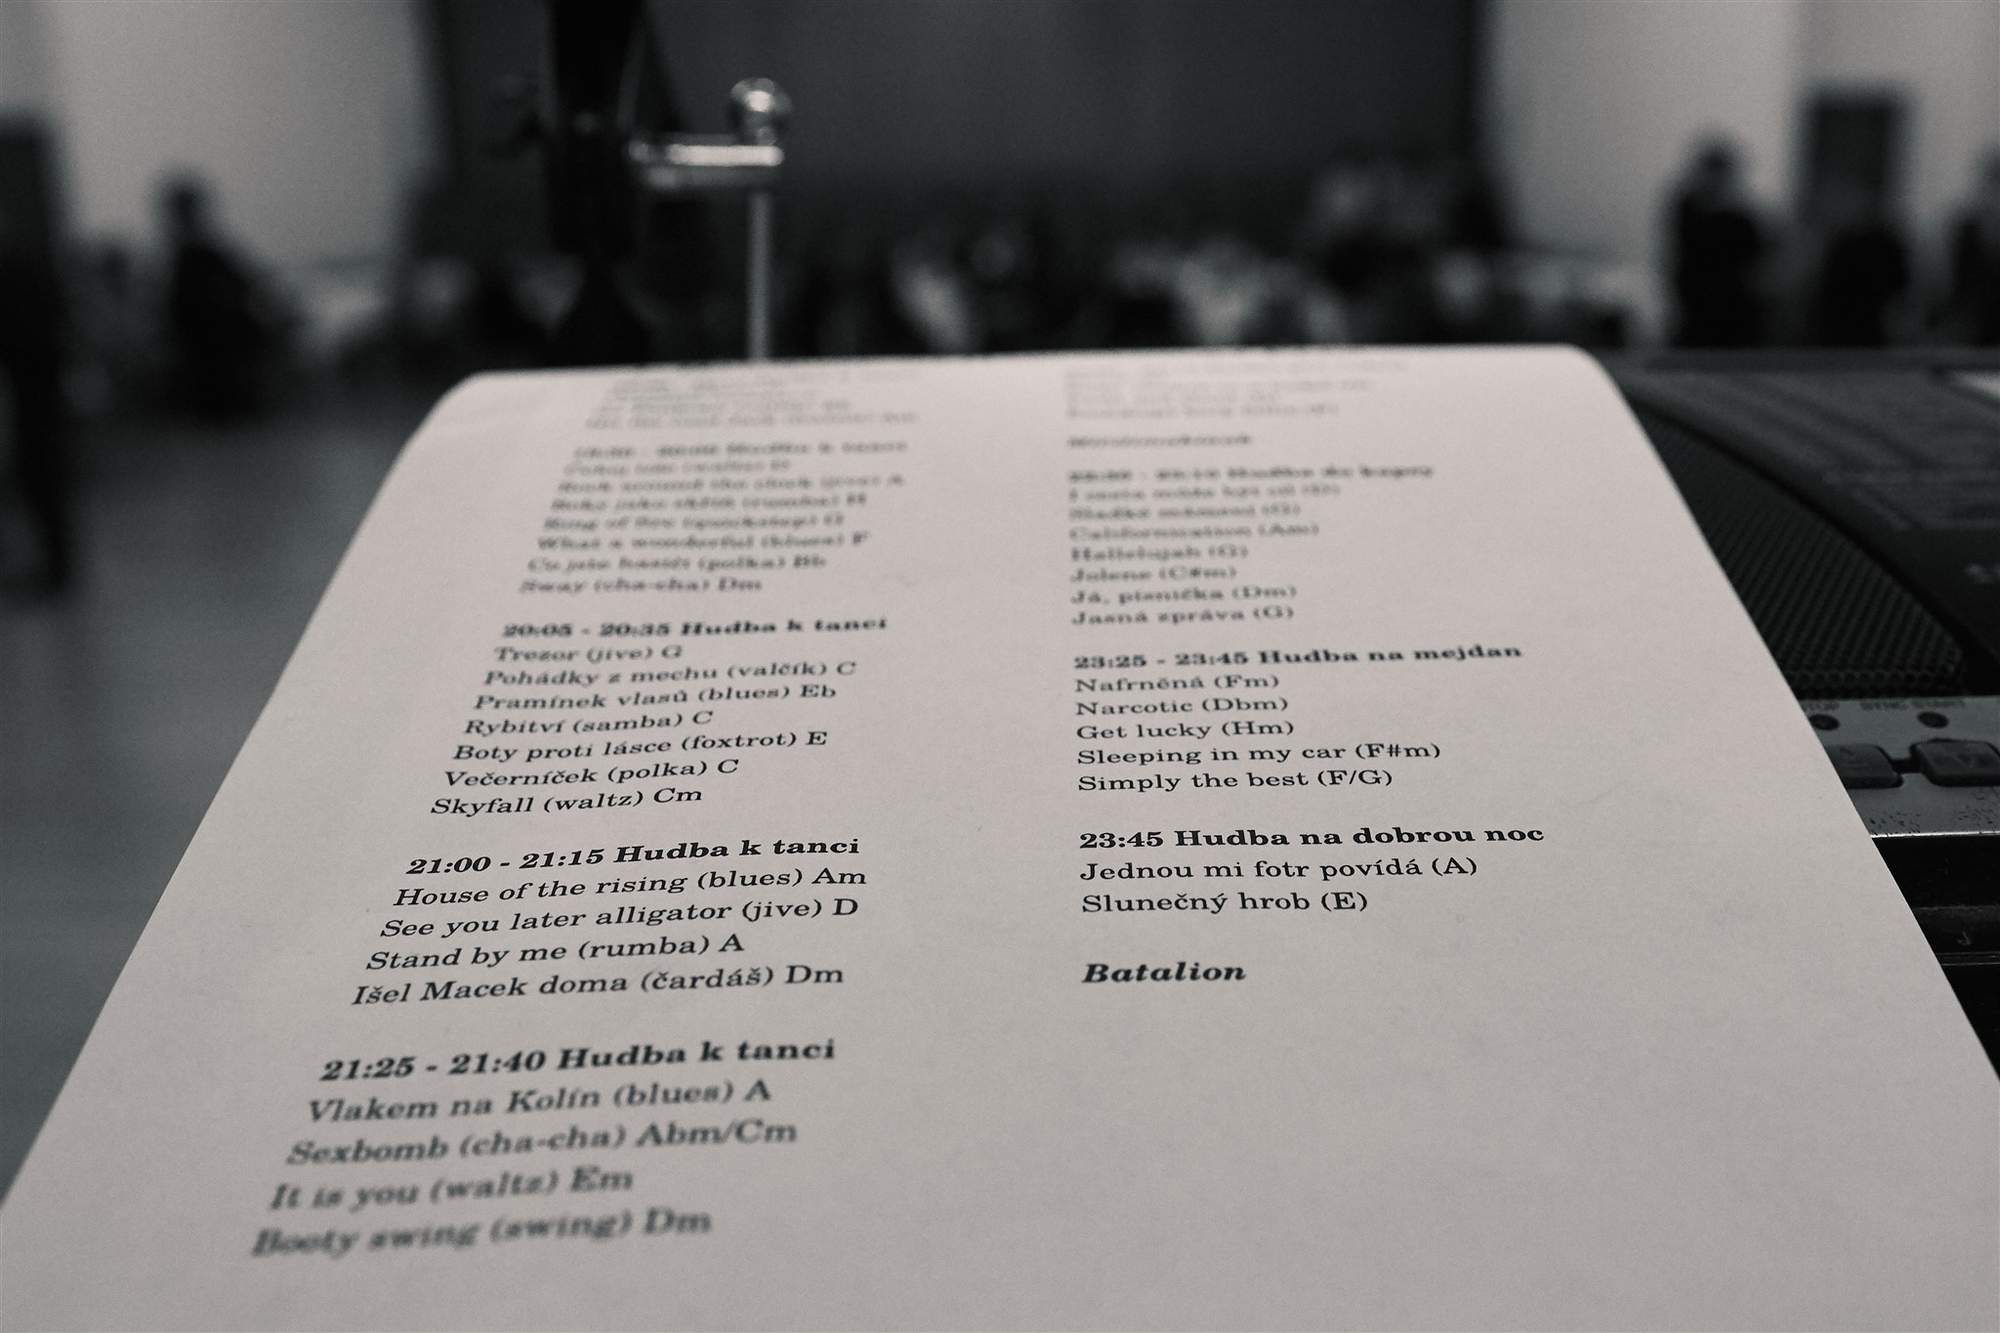 Hudba k tanci
Rock around the clock (jive) A
Ring of fire (quickstep) G
What a wonderful (blues) F
(polka) Bb
Sway (cha-cha) Dm
20:05 - 20:35 Hudba k tanci
Trezor (jive) G
Pohádky z mechu (valčík) C
Pramínek vlasů (blues) Eb
Rybitví (samba) C
Boty proti lásce (foxtrot) E
Večerníček (polka) C
Skyfall (waltz) Cm
21:00 - 21:15 Hudba k tanci
House of the rising (blues) Am
See you later alligator (jive) D
Stand by me (rumba) A
Išel Macek doma (čardáš) Dm
21:25 - 21:40 Hudba k tanci
Vlakem na Kolín (blues) A
Sexbomb (cha-cha) Abm/Cm
It is you (waltz) Em
Booty swing (swing) Dm
Hudba do kapsy
I cesta může být cíl
Sladké mámení (G)
Californication (Am)
Hallelujah (G)
Jolene (C#m)
Já, písnička (Dm)
Jasná zpráva (G)
23:25 - 23:45 Hudba na mejdan
Nafrněná (Fm)
Narcotic (Dbm)
Get lucky (Hm)
Sleeping in my car (F#m)
Simply the best (F/G)
23:45 Hudba na dobrou noc
Jednou mi fotr povídá (A)
Slunečný hrob (E)
Batalion
SYNC START